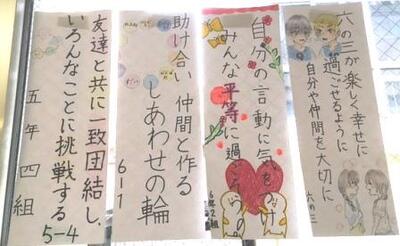 六の三が楽しく幸せに
過ごせるように
自分や仲間を大切に
六の三
自分の言動に気をつけ
みんな平等に過ごす
6年2組
助け合い 仲間と作る
しあわせの輪
6-1
友達と共に一致団結し、
いろんなことに挑戦する
五年四組
5-4